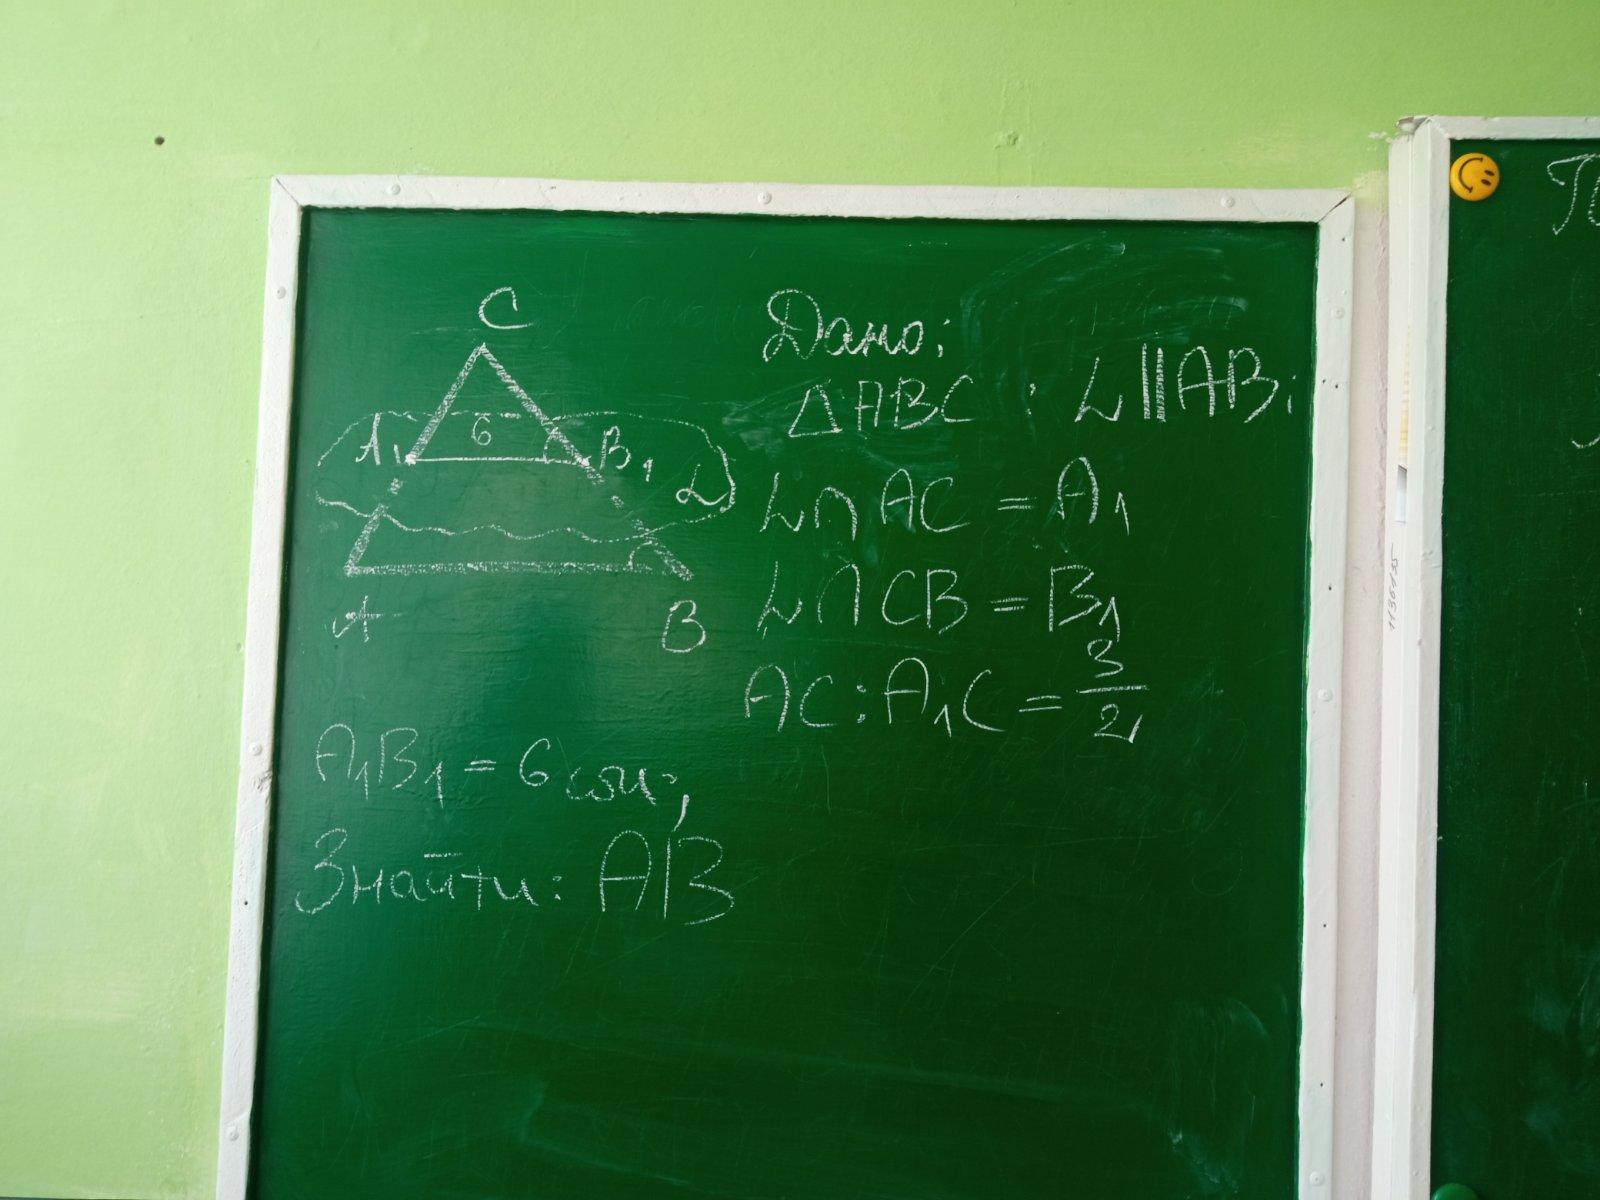 C
A₁ 6 B₁ L
A B
Дано:
△ABC : L∥AB;
L∩AC = A₁
L∩CB = B₁
AC:A₁C = 3/2,
A₁B₁ = 6 см;
Знайти: AB